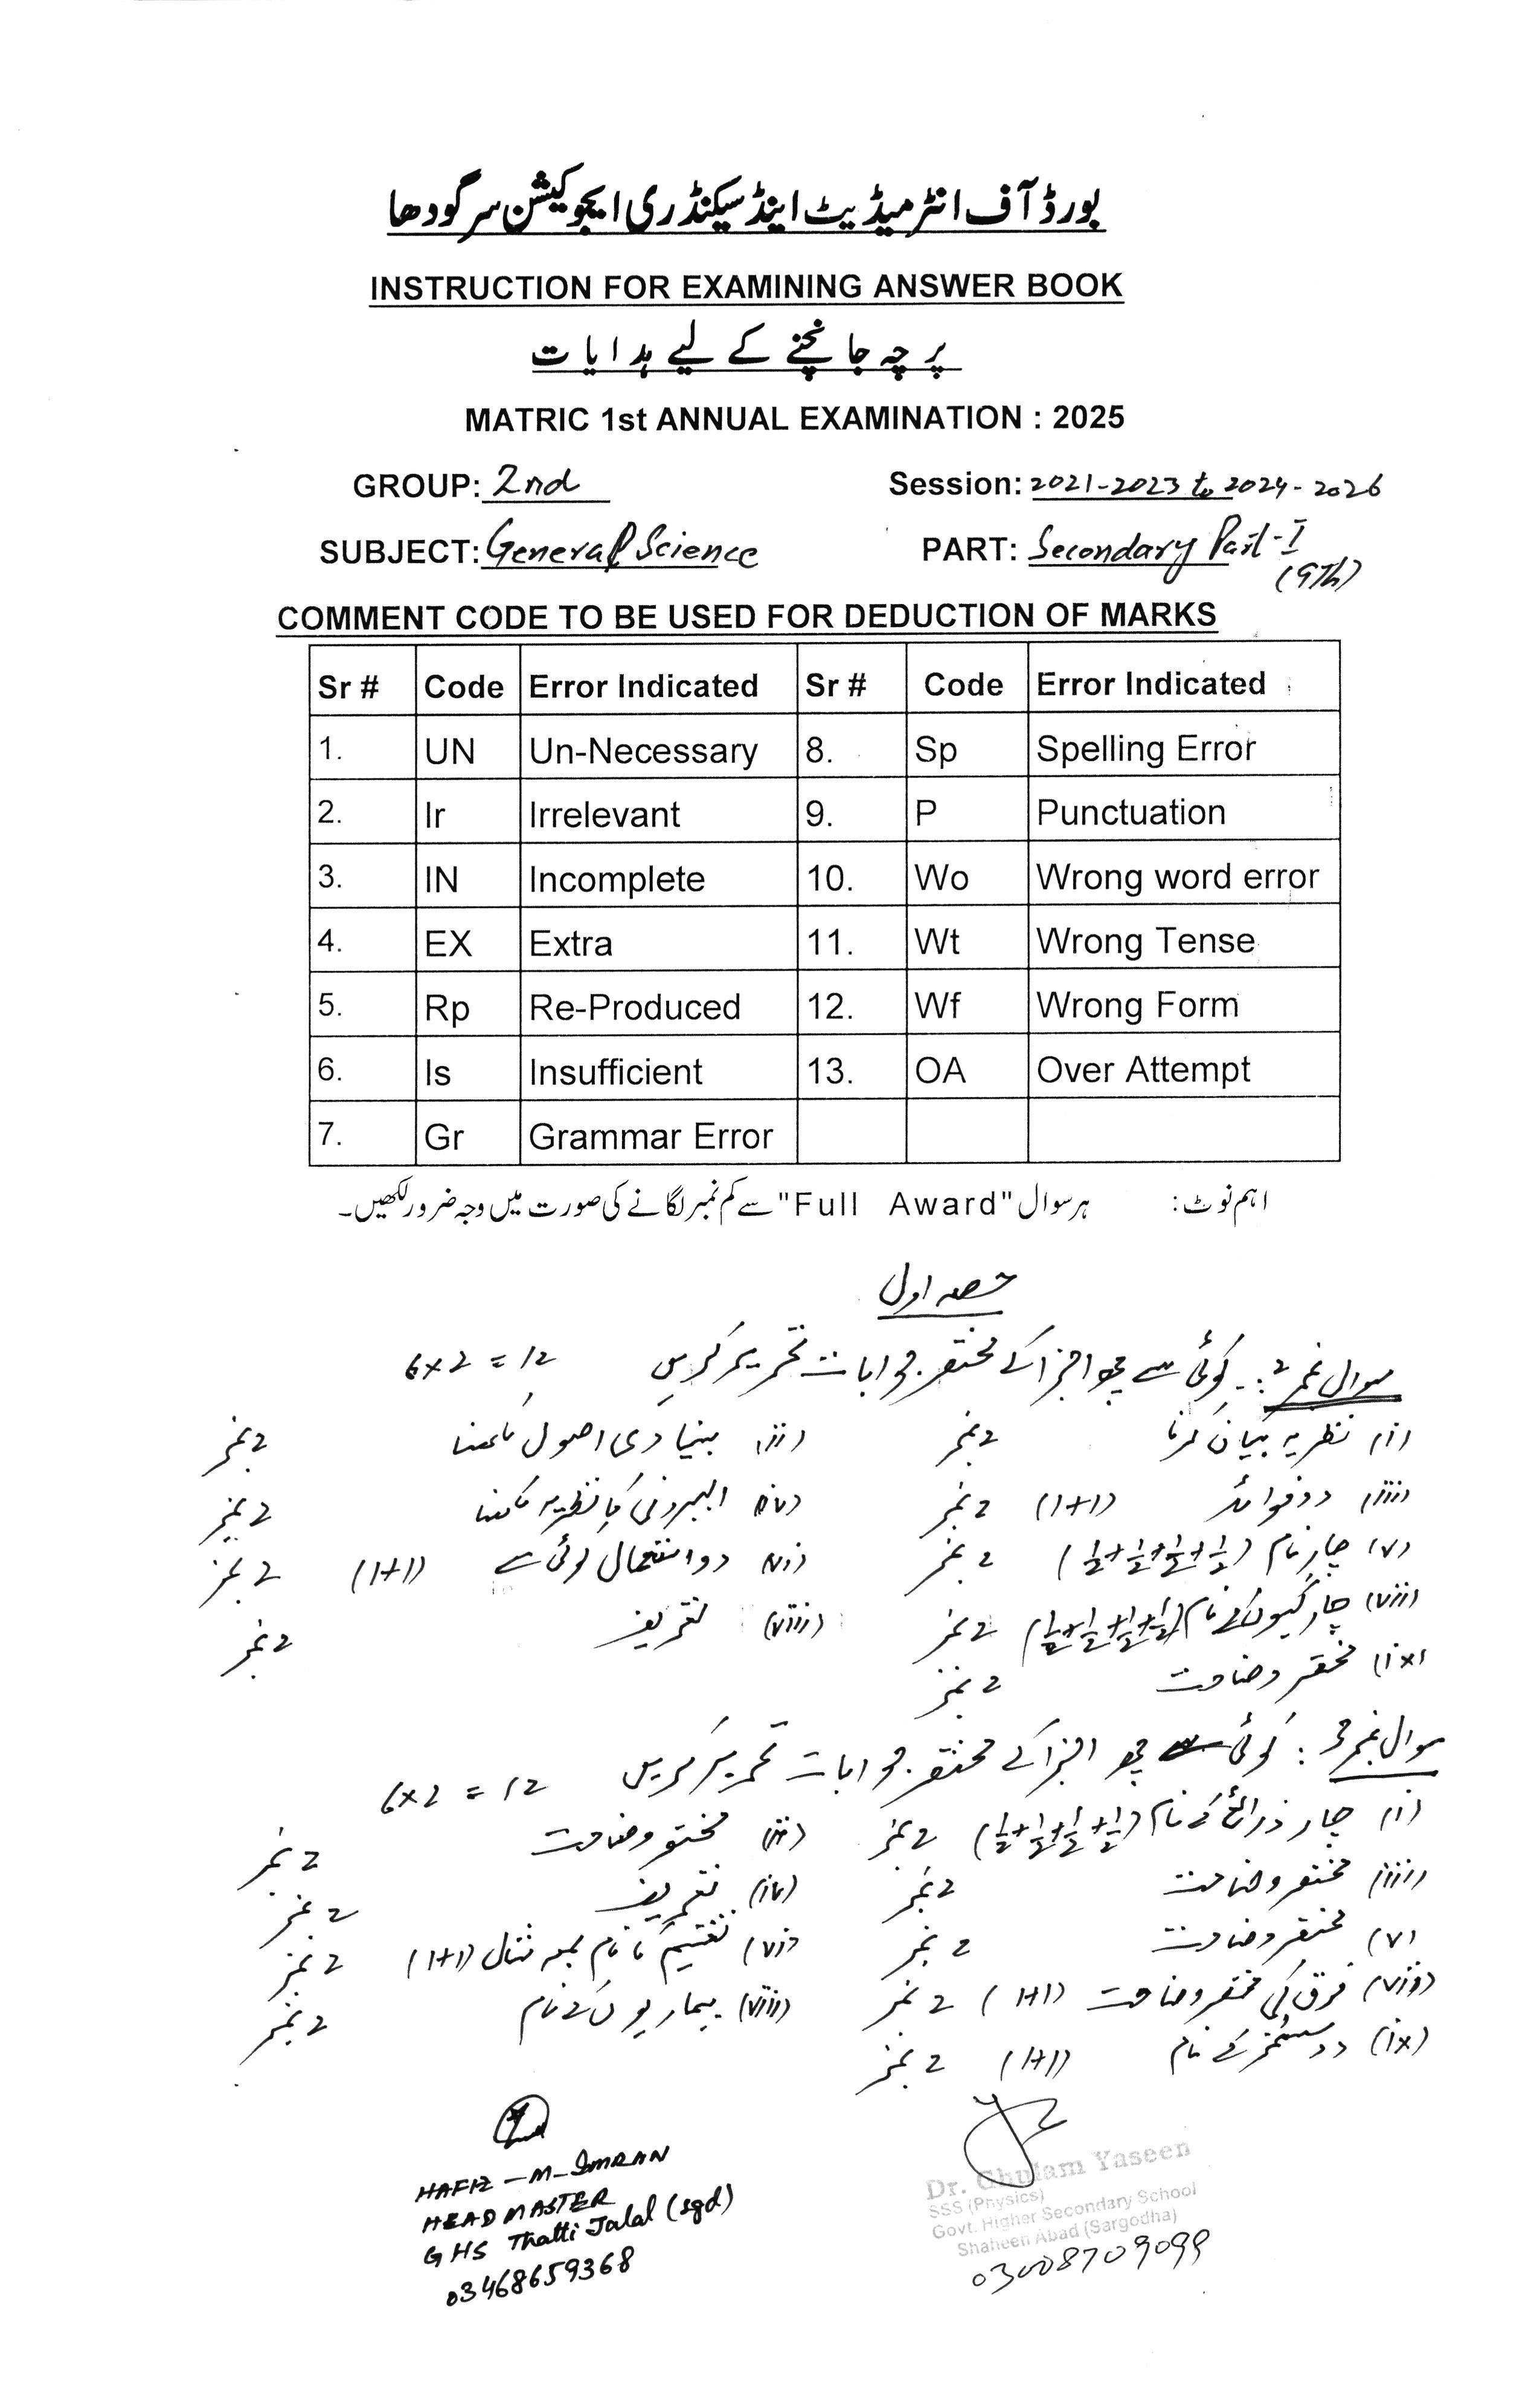 بورڈ آف انٹرمیڈیٹ اینڈ سیکنڈری ایجوکیشن سرگودھا
INSTRUCTION FOR EXAMINING ANSWER BOOK
پرچہ جانچنے کے لیے ہدایات
MATRIC 1st ANNUAL EXAMINATION : 2025
GROUP: 2nd Session: 2021-2023 to 2024-2026
SUBJECT: General Science PART: Secondary Part-I
(9Th)
COMMENT CODE TO BE USED FOR DEDUCTION OF MARKS
Sr # Code Error Indicated Sr # Code Error Indicated
1. UN Un-Necessary 8. Sp Spelling Error
2. Ir Irrelevant 9. P Punctuation
3. IN Incomplete 10. Wo Wrong word error
4. EX Extra 11. Wt Wrong Tense
5. Rp Re-Produced 12. Wf Wrong Form
6. Is Insufficient 13. OA Over Attempt
7. Gr Grammar Error
اہم نوٹ: ہر سوال "Full Award" سے کم نمبر لگانے کی صورت میں وجہ ضرور لکھیں۔
حصہ اول
سوال نمبر 2:۔ کوئی سے چھ اجزا کے مختصر جوابات تحریر کریں 6x2 = 12
(i) نظریہ بیان کرنا 2 نمبر (ii) بنیادی اصول لکھنا 2 نمبر
(iii) دو فوائد (1+1) 2 نمبر (iv) البیرونی کا نظریہ لکھنا 2 نمبر
(v) چار نام (½+½+½+½) 2 نمبر (vi) دو استعمال کوئی سے (1+1) 2 نمبر
(vii) چار گیسوں کے نام (½+½+½+½) 2 نمبر (viii) تعریف 2 نمبر
(ix) مختصر وضاحت 2 نمبر
سوال نمبر 3: کوئی سے چھ اجزا کے مختصر جوابات تحریر کریں 6x2 = 12
(i) چار ذرائع کے نام (½+½+½+½) 2 نمبر (ii) مختصر وضاحت 2 نمبر
(iii) مختصر وضاحت 2 نمبر (iv) تعریف 2 نمبر
(v) مختصر وضاحت 2 نمبر (vi) تقسیم کا نام بمعہ مثال (1+1) 2 نمبر
(vii) فرق کی مختصر وضاحت (1+1) 2 نمبر (viii) بیماریوں کے نام 2 نمبر
(ix) دو سسٹمز کے نام (1+1) 2 نمبر
HAFIZ-M-IMRAN
HEADMASTER
GHS Thatti Jalal (sgd)
03468659368
Dr. Ghulam Yaseen
SSS (Physics)
Govt. Higher Secondary School
Shaheen Abad (Sargodha)
03008709099